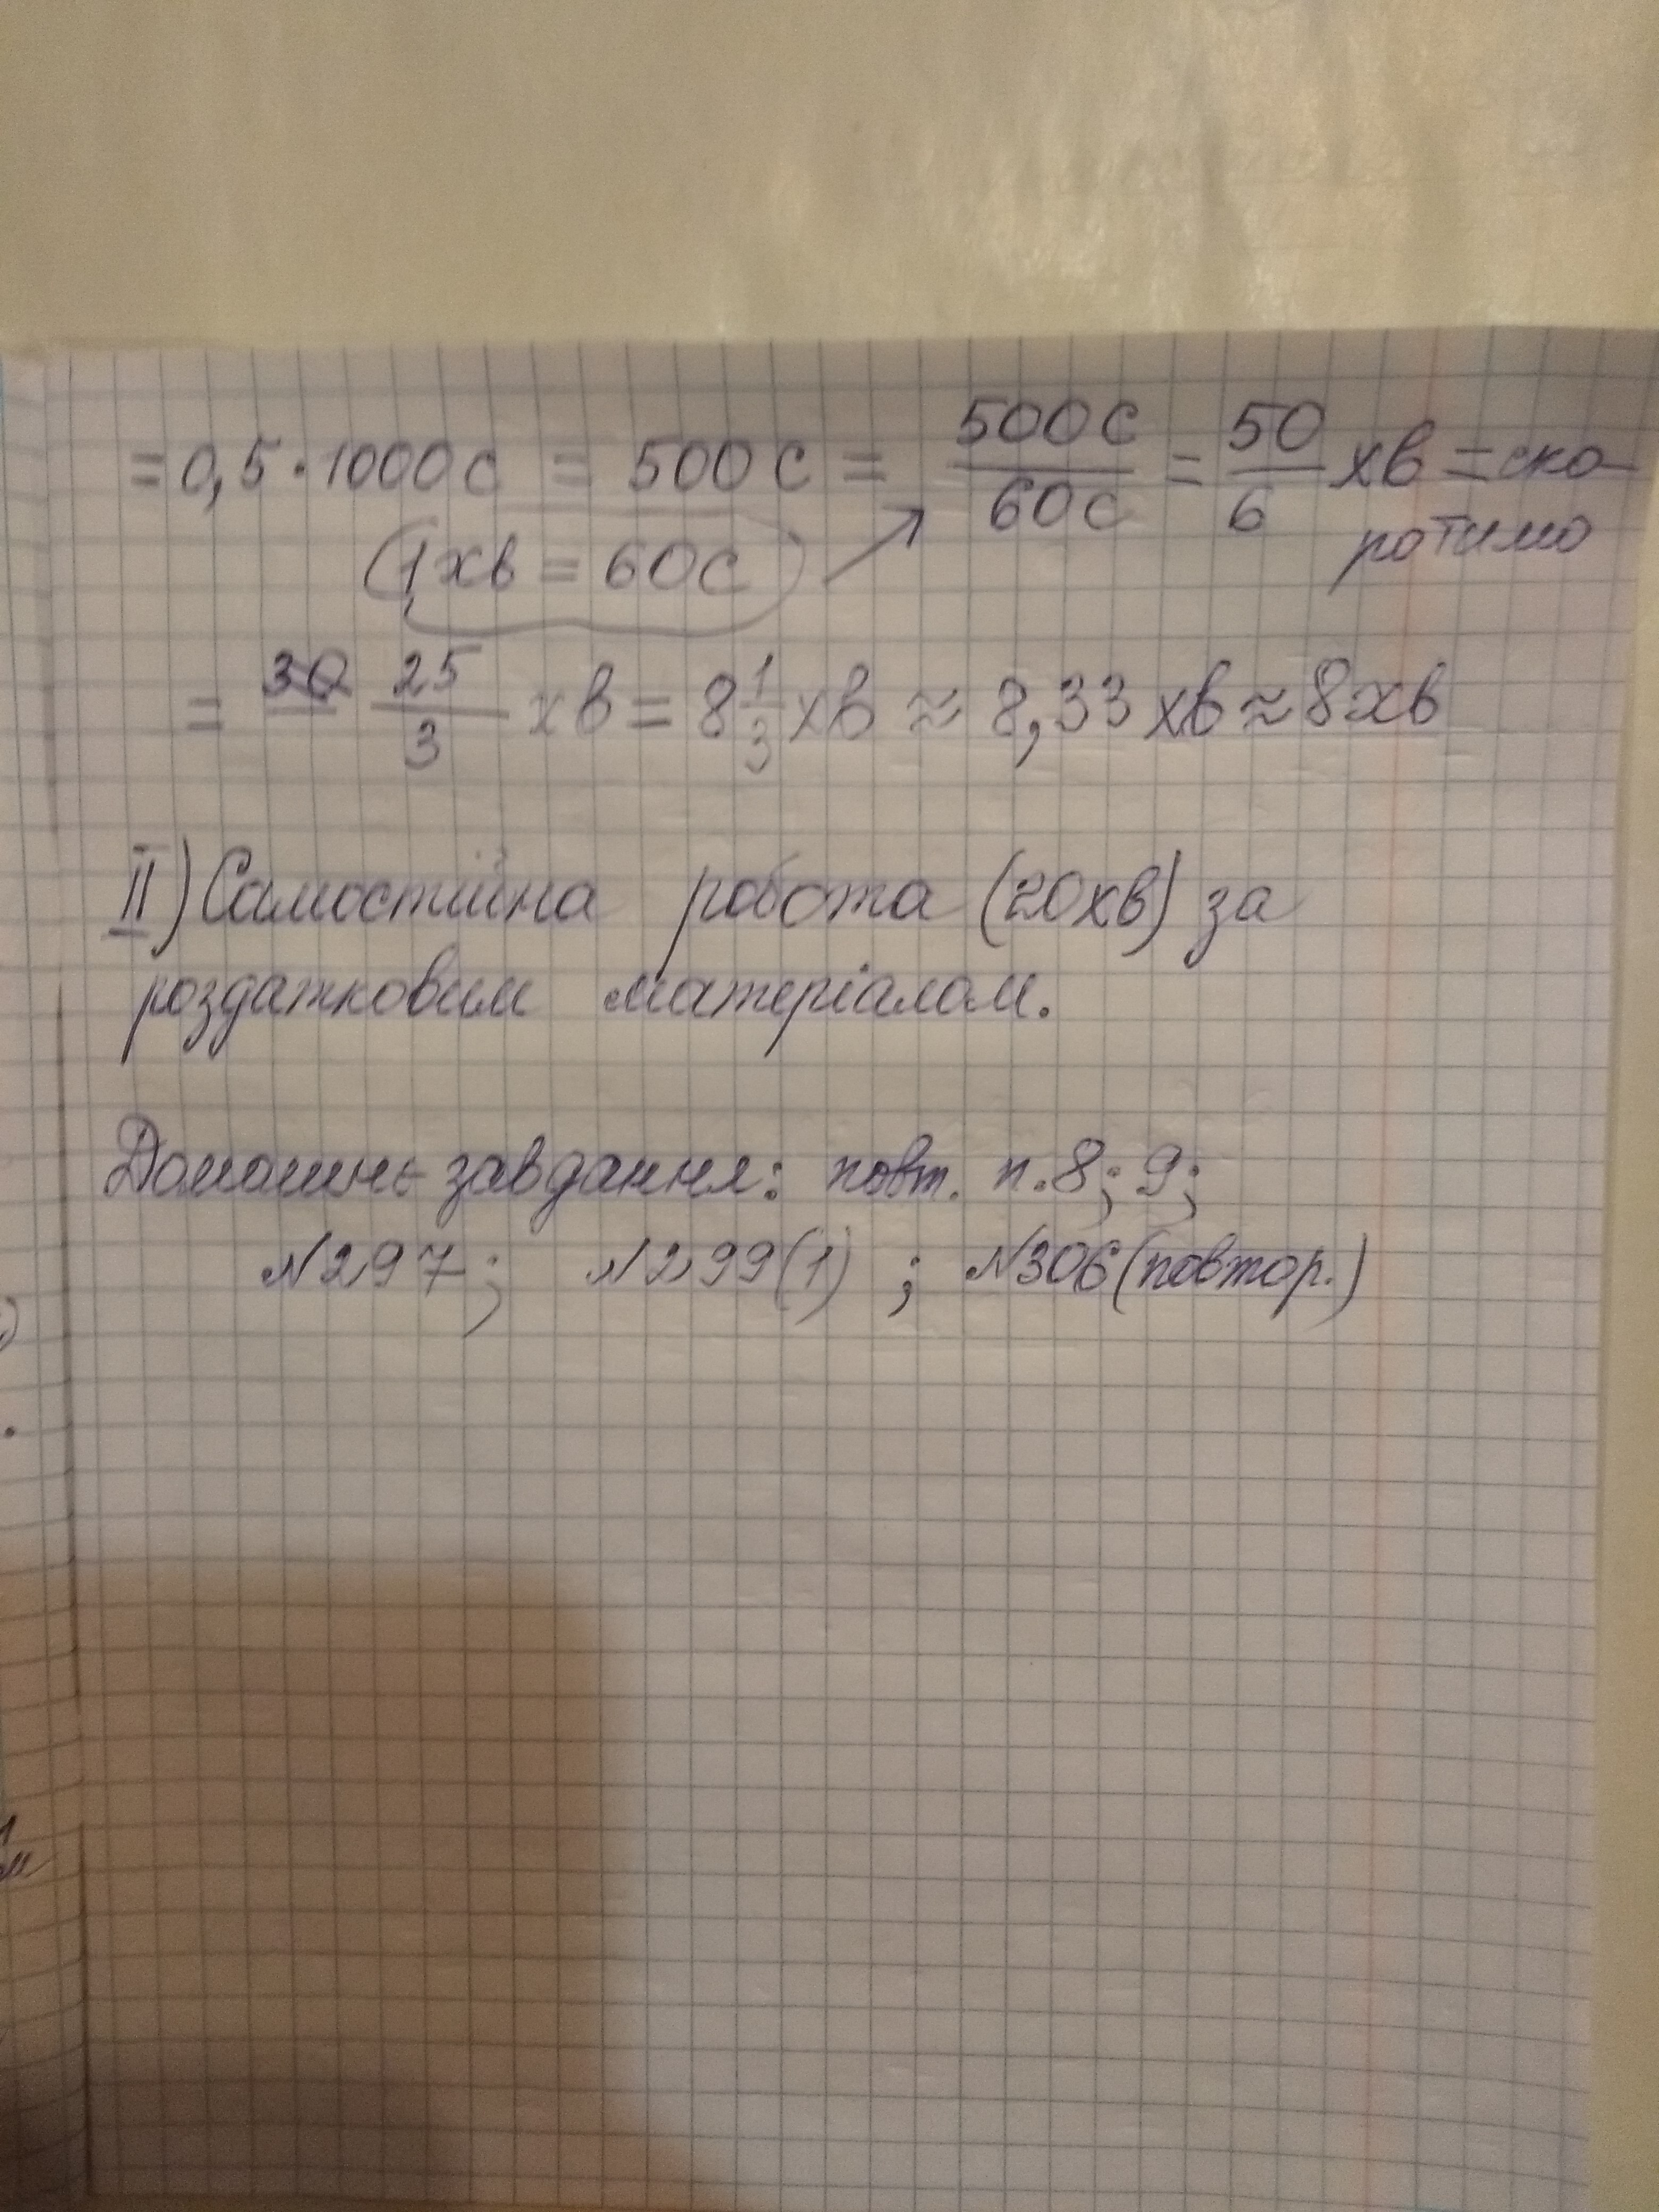 = 0,5 · 1000 с = 500 с = 500 с / 60 с = 50/6 хв = ско-
ротимо
(1 хв = 60 с)
= 30 25/3 хв = 8 1/3 хв ≈ 8,33 хв ≈ 8 хв
II) Самостійна робота (20 хв) за
роздатковим матеріалом.
Домашнє завдання: повт. п. 8; 9;
№297; №299(1) ; №306 (повтор.)